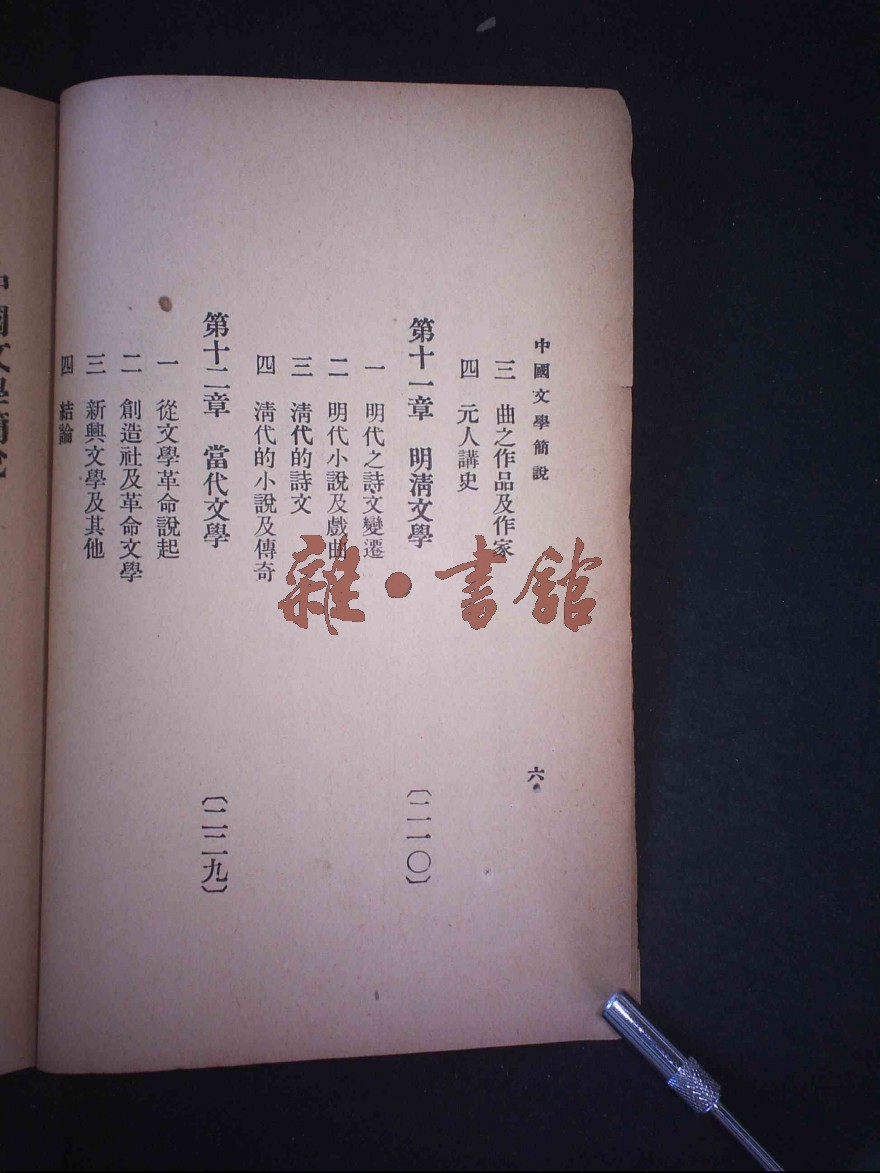 中國文學簡說
六
三　曲之作品及作家
四　元人講史
第十一章　明清文學　〔二一〇〕
一　明代之詩文變遷
二　明代小說及戲曲
三　清代的詩文
四　清代的小說及傳奇
第十二章　當代文學　〔二二九〕
一　從文學革命說起
二　創造社及革命文學
三　新興文學及其他
四　結論
中國文學簡說
雜·書館